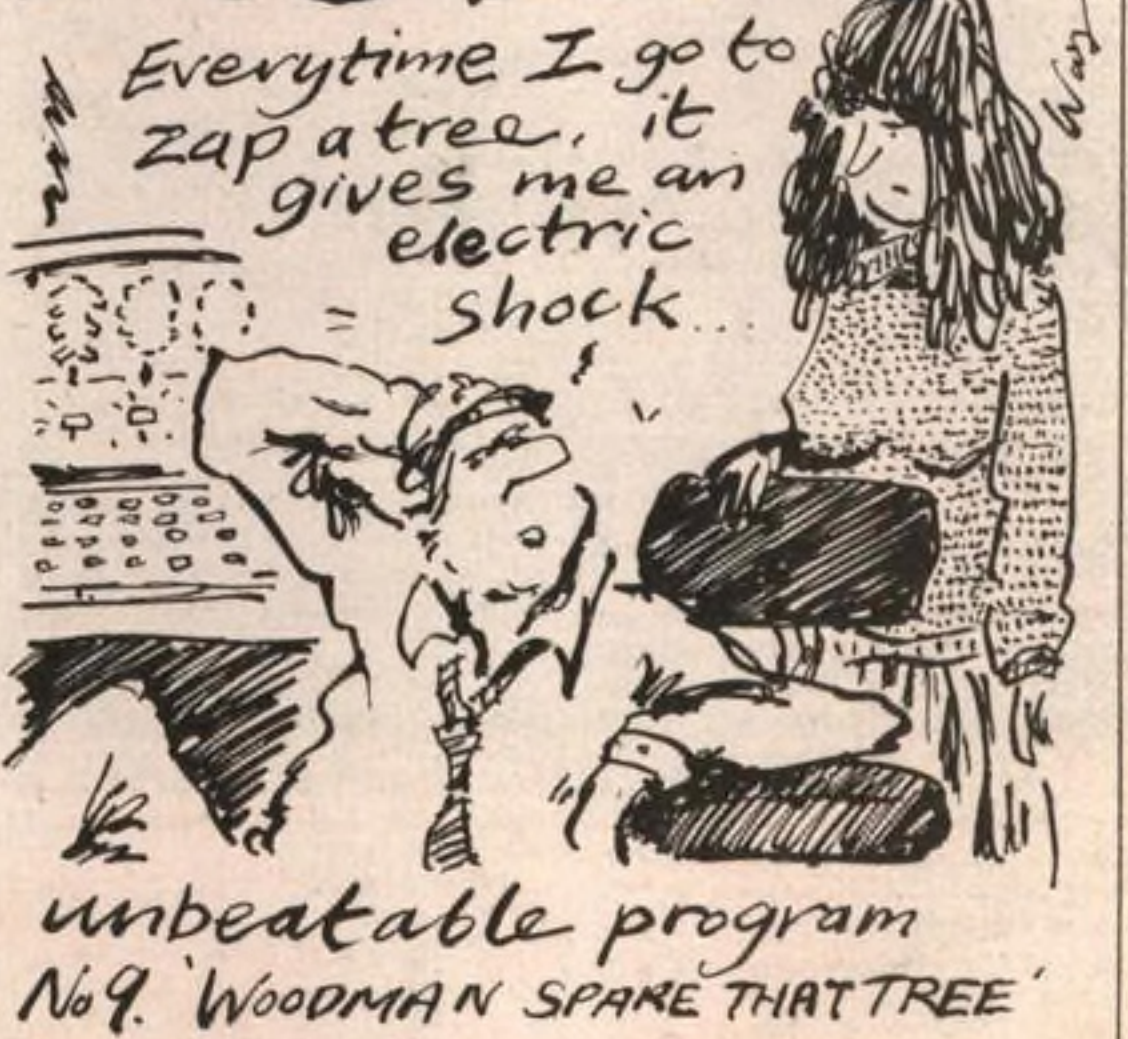 Everytime I go to
zap a tree, it
gives me an
electric
shock...
unbeatable program
No 9. 'WOODMAN SPARE THAT TREE'